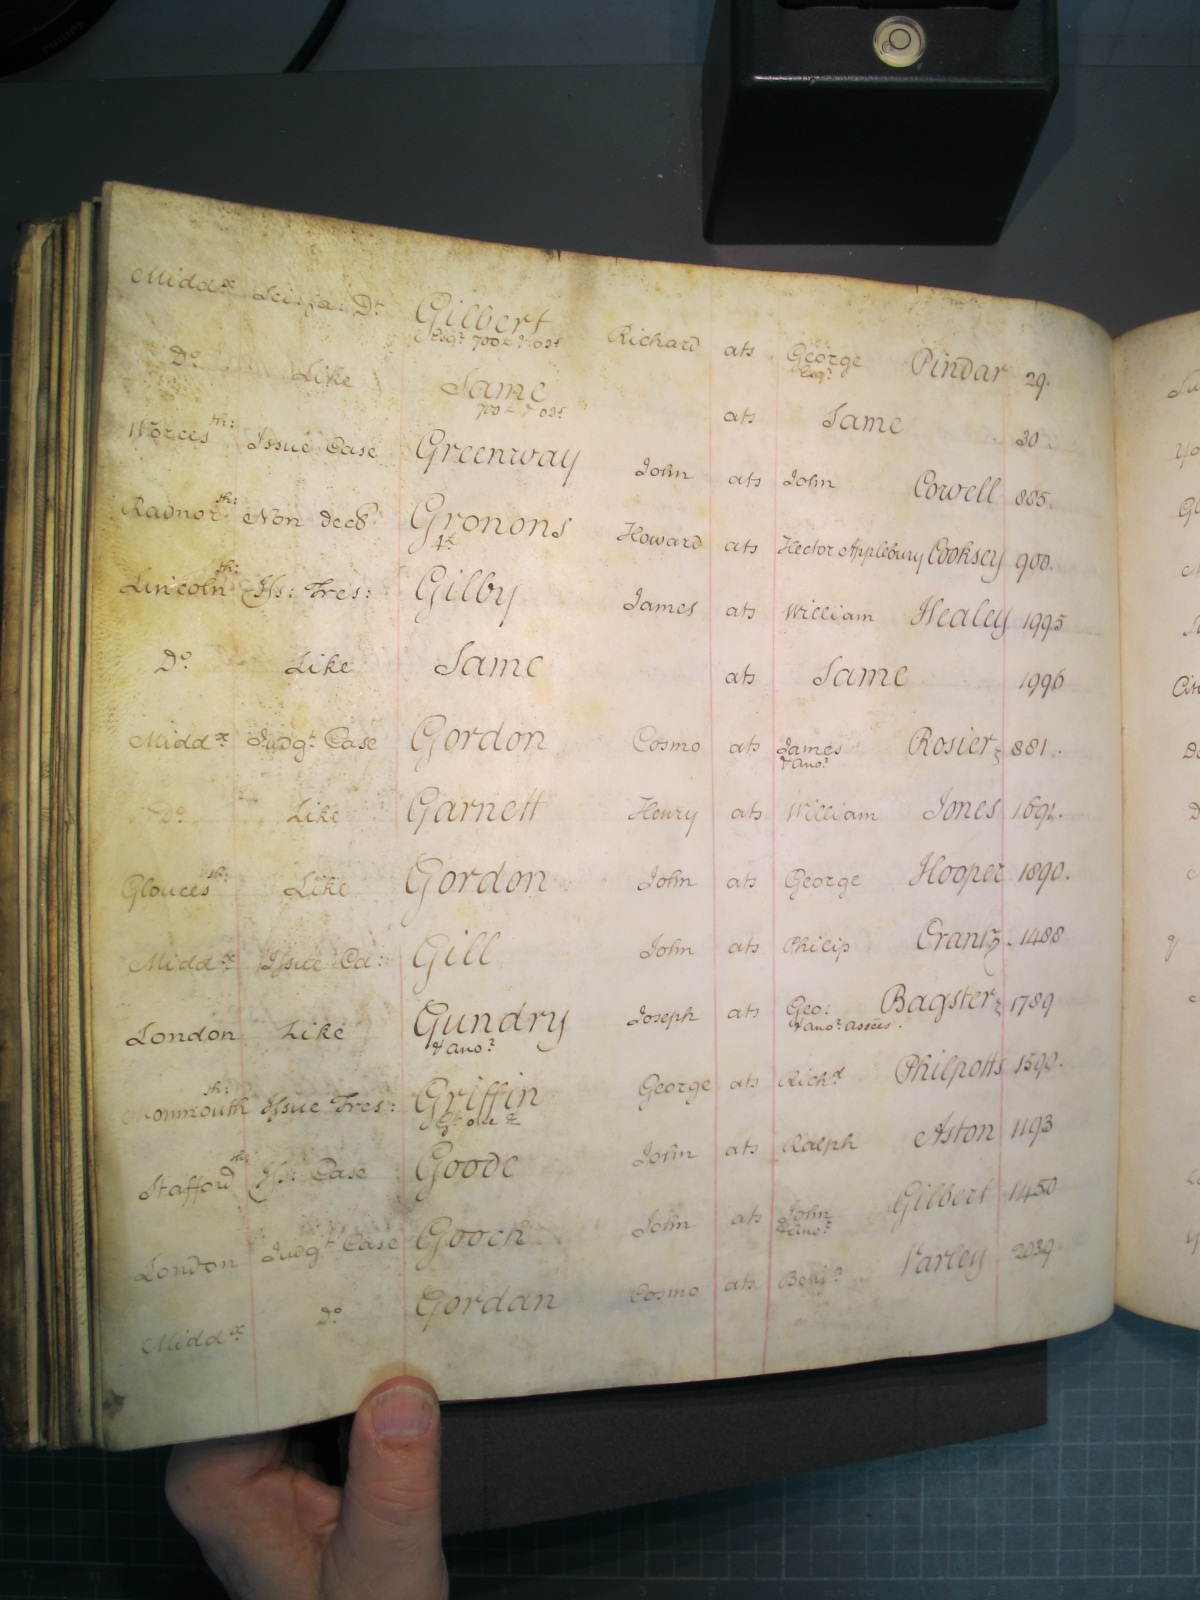 Middx Sci: fa: Dt Gilbert Richard ats George Pindar 29.
Esqr 700£ & 63s Esqr
Do Like Same ats Same 30
700£ & 63s
Worcesth: Issue Case Greenway John ats John Cowell 885.
Radnorsh: Non Decl Gronons Howard ats Hector Applebury Cooksey 900.
Lincolnth: Iss: Tres: Gilby James ats William Healey 1995
Do Like Same ats Same 1996
Middx Judgt Case Gordon Cosmo ats James Rosier 881.
& anor
Do Like Garnett Henry ats William Jones 1691.
Gloucessh: Like Gordon John ats George Hooper 1890.
Middx Issue Ca: Gill John ats Philip Crantz 1488
London Like Gundry Joseph ats Geo: Bagster 1789
& anor & anor assees.
Monmouthsh: Issue Tres: Griffin George ats Richd Philpotts 1590.
Staffordsh: Iss: Case Goode John ats Ralph Aston 1193
London Judgt Case Gooch John ats John Gilbert 1450
& anor
Middx Do Gordan Cosmo ats Benjn Varley 2039